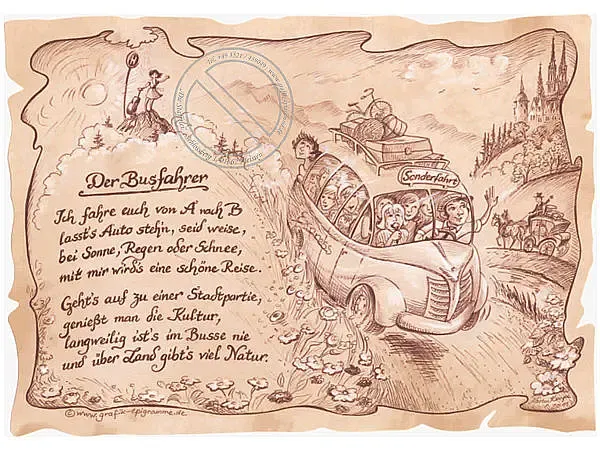 Der Busfahrer
Ich fahre euch von A nach B
lasst's Auto stehn, seid weise,
bei Sonne, Regen oder Schnee,
mit mir wird's eine schöne Reise.
Geht's auf zu einer Stadtpartie,
genießt man die Kultur,
langweilig ist's im Busse nie
und über Land gibt's viel Natur.
Sonderfahrt
H
©www.grafik-epigramme.de